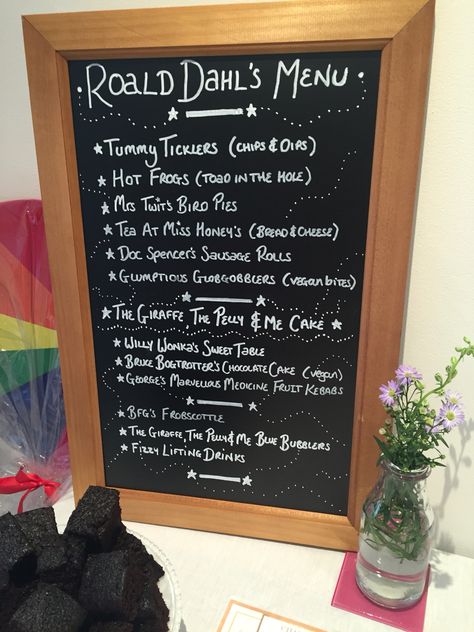 ROALD DAHL'S MENU
TUMMY TICKLERS (CHIPS & DIPS)
HOT FROGS (TOAD IN THE HOLE)
MRS TWIT'S BIRD PIES
TEA AT MISS HONEY'S (BREAD & CHEESE)
DOC SPENCER'S SAUSAGE ROLLS
GLUMPTIOUS GLOBGOBBLERS (VEGAN BITES)
THE GIRAFFE, THE PELLY & ME CAKE
WILLY WONKA'S SWEET TABLE
BRUCE BOGTROTTER'S CHOCOLATE CAKE (VEGAN)
GEORGE'S MARVELLOUS MEDICINE FRUIT KEBABS
BFG'S FROBSCOTTLE
THE GIRAFFE, THE PELLY & ME BLUE BUBBLERS
FIZZY LIFTING DRINKS